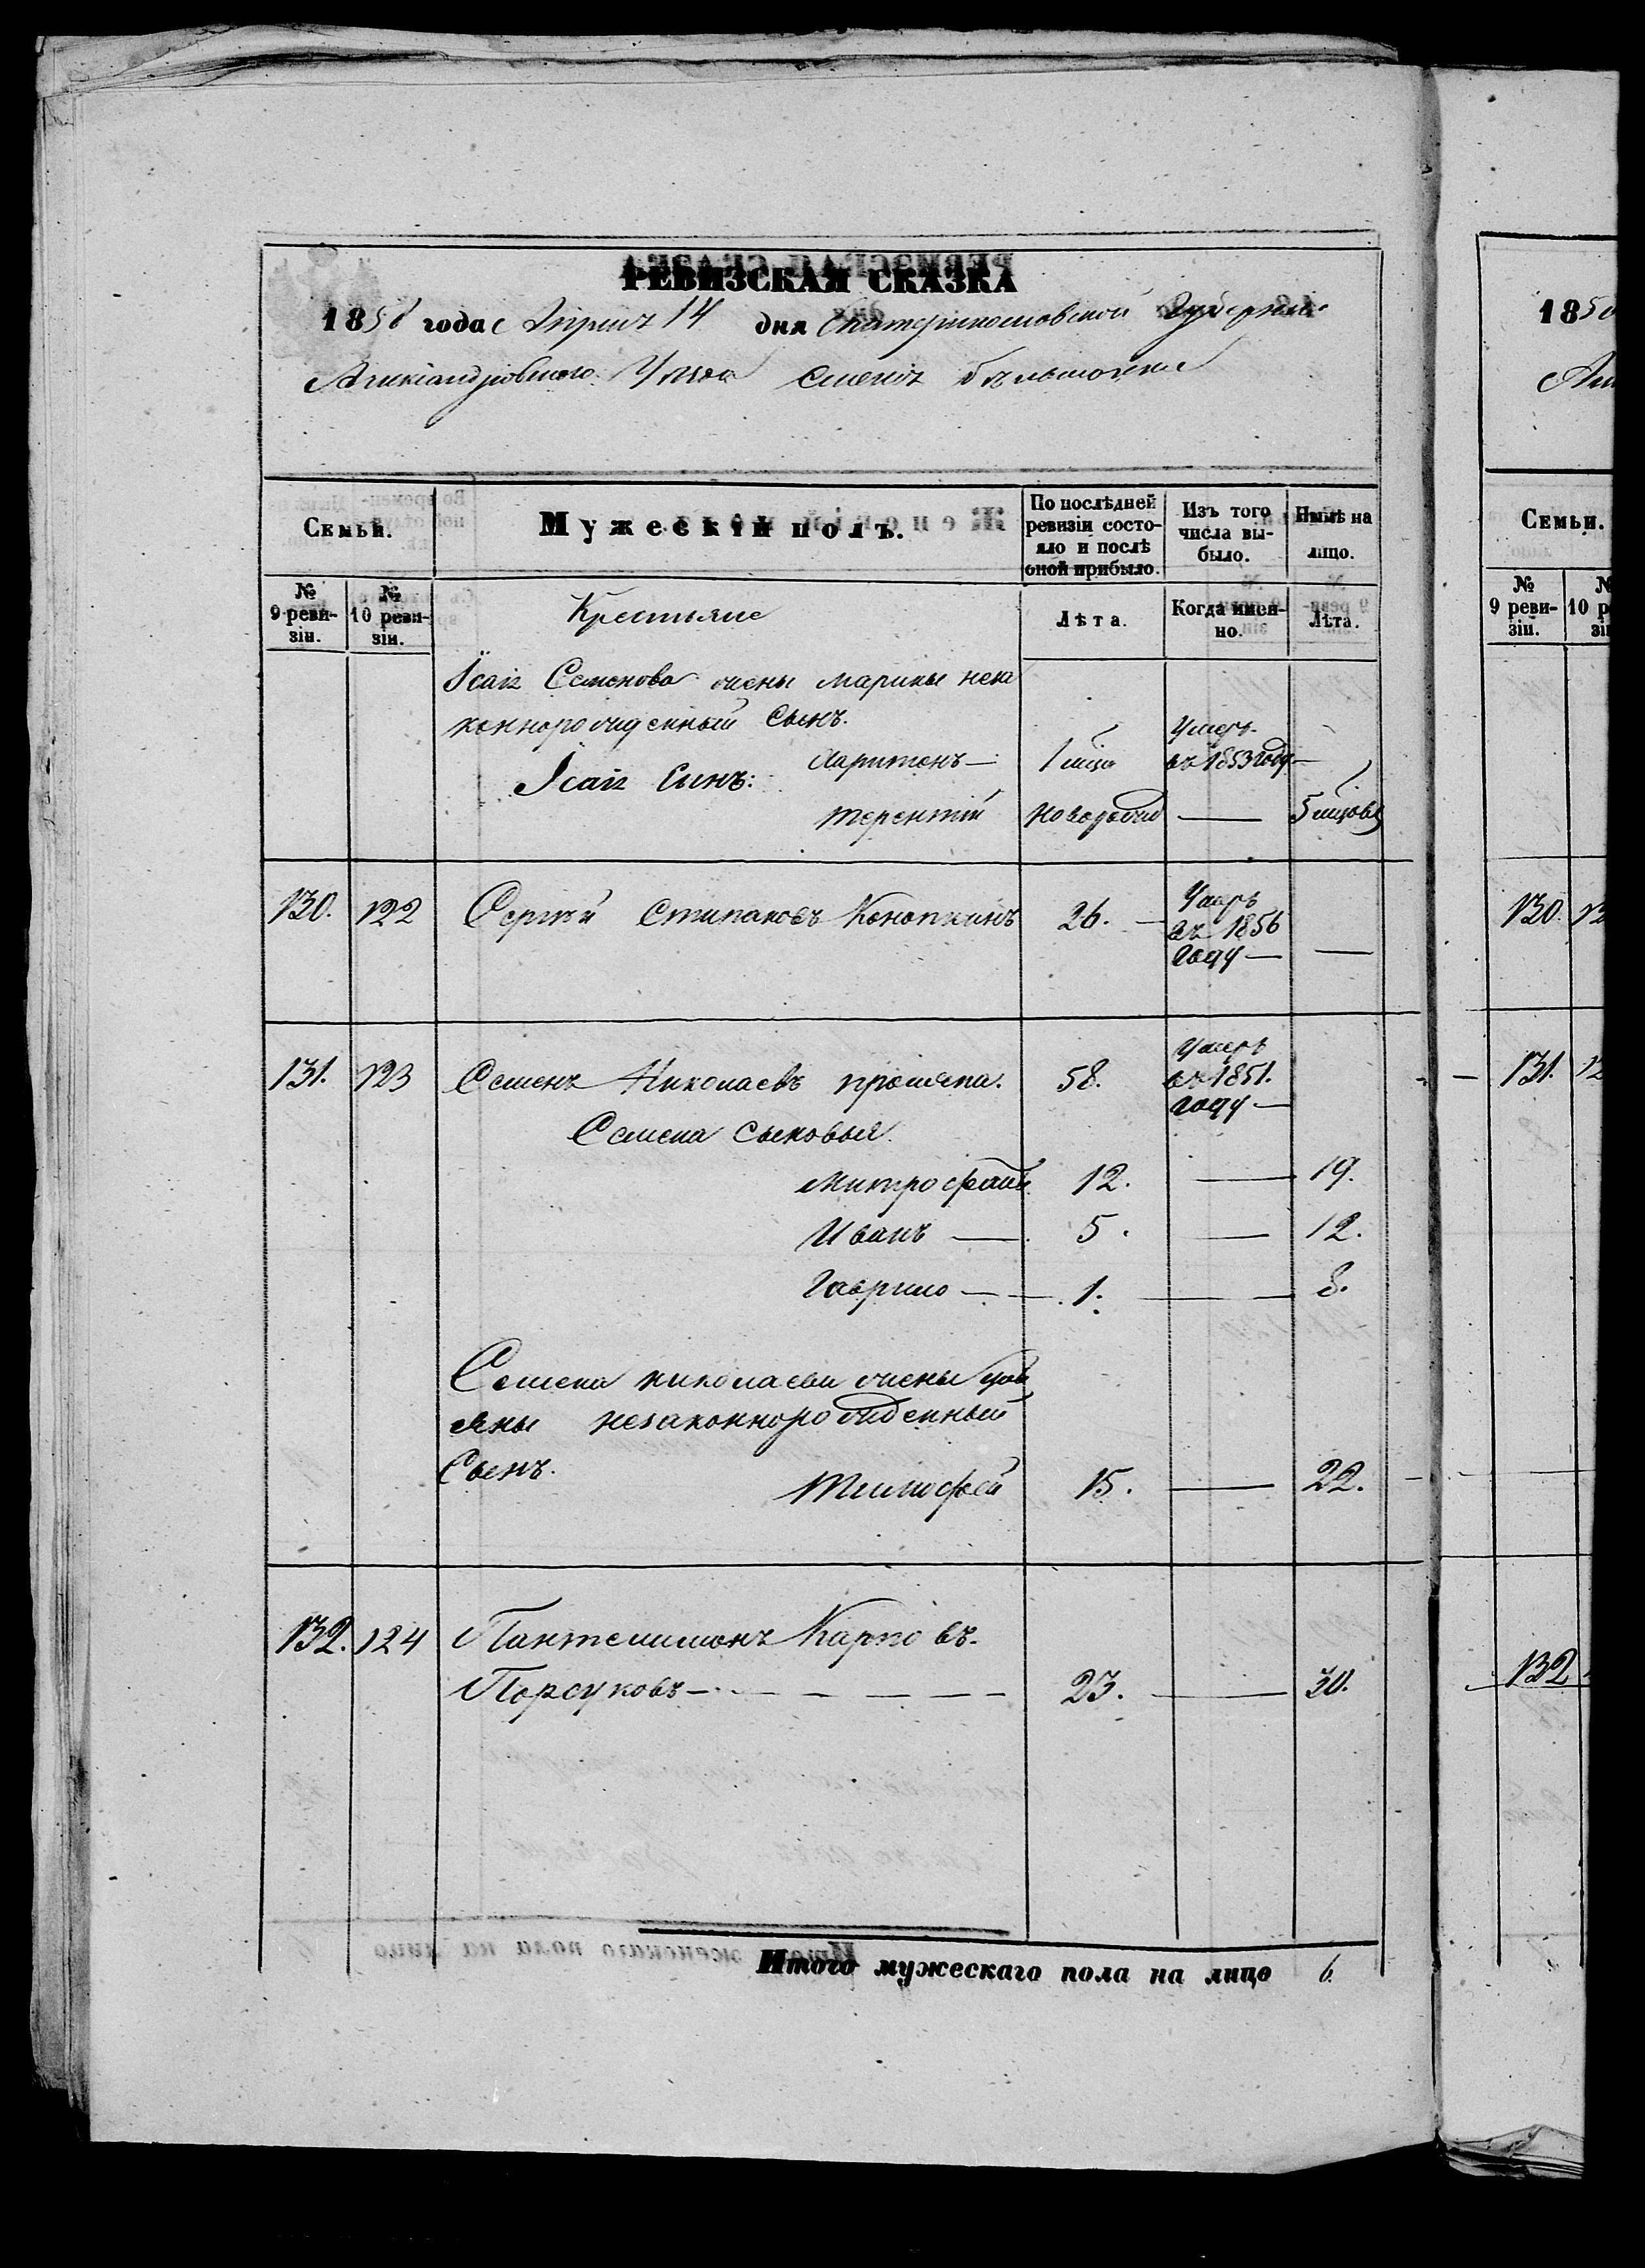 РЕВИЗСКАЯ СКАЗКА
1858 года Апреля 14 дня Екатеринославской Губернии
Александровскаго Уѣзда
Семьи.
Мужескій полъ.
По послѣдней ревизіи состо-
яло и послѣ оной прибыло.
Изъ того числа вы-
было.
Нынѣ на лицо.
№ 9 реви-
зіи.
№ 10 реви-
зіи.
Крестьяне
Лѣта.
Когда имен-
но.
Лѣта.
Ісая Семенова жены Марины неза
коннорожденный Сынъ.
Харитонъ— 1 мѣца Умеръ въ 1853 году—
Ісая Сынъ:
Терентій Новорожд — 5 мѣцовъ
130. 122 Сергѣй Стипановъ Конопкинъ 26. — Умеръ въ 1856 году — —
131. 123 Семенъ Николаевъ 58. Умеръ въ 1851. году —
Семена Сыновья.
Митрофанъ 12. — 19.
Иванъ — 5. — 12.
Гаврило — 1. — 8.
Семена Николаева жены
незаконнорожденный
Сынъ.
Тимофей 15. — 22.
132. 124 Пантелимонъ Карповъ.
Порсуковъ — 23. — 30.
Итого мужескаго пола на лицо 6.
1850
Семьи.
№ 9 реви-
зіи.
130.
131.
132